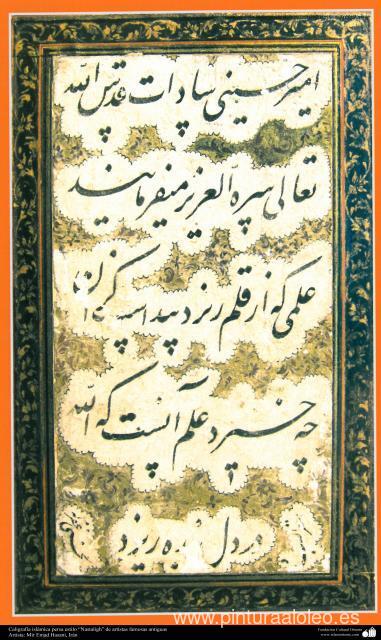 امیر حسینی سادات قدس الله
تعالی سره العزیز میفرمایند
علمی که از قلم ریزد پیداست کزان
چه خیزد علم آنست که الله
در دل ریزد
www.pinturaaloleo.es
Caligrafía islámica persa estilo "Nastaligh" de artistas famosas antiguas
Artista: Mir Emad Hasani, Irán
Fundación Cultural Oriente
www.islamoriente.com